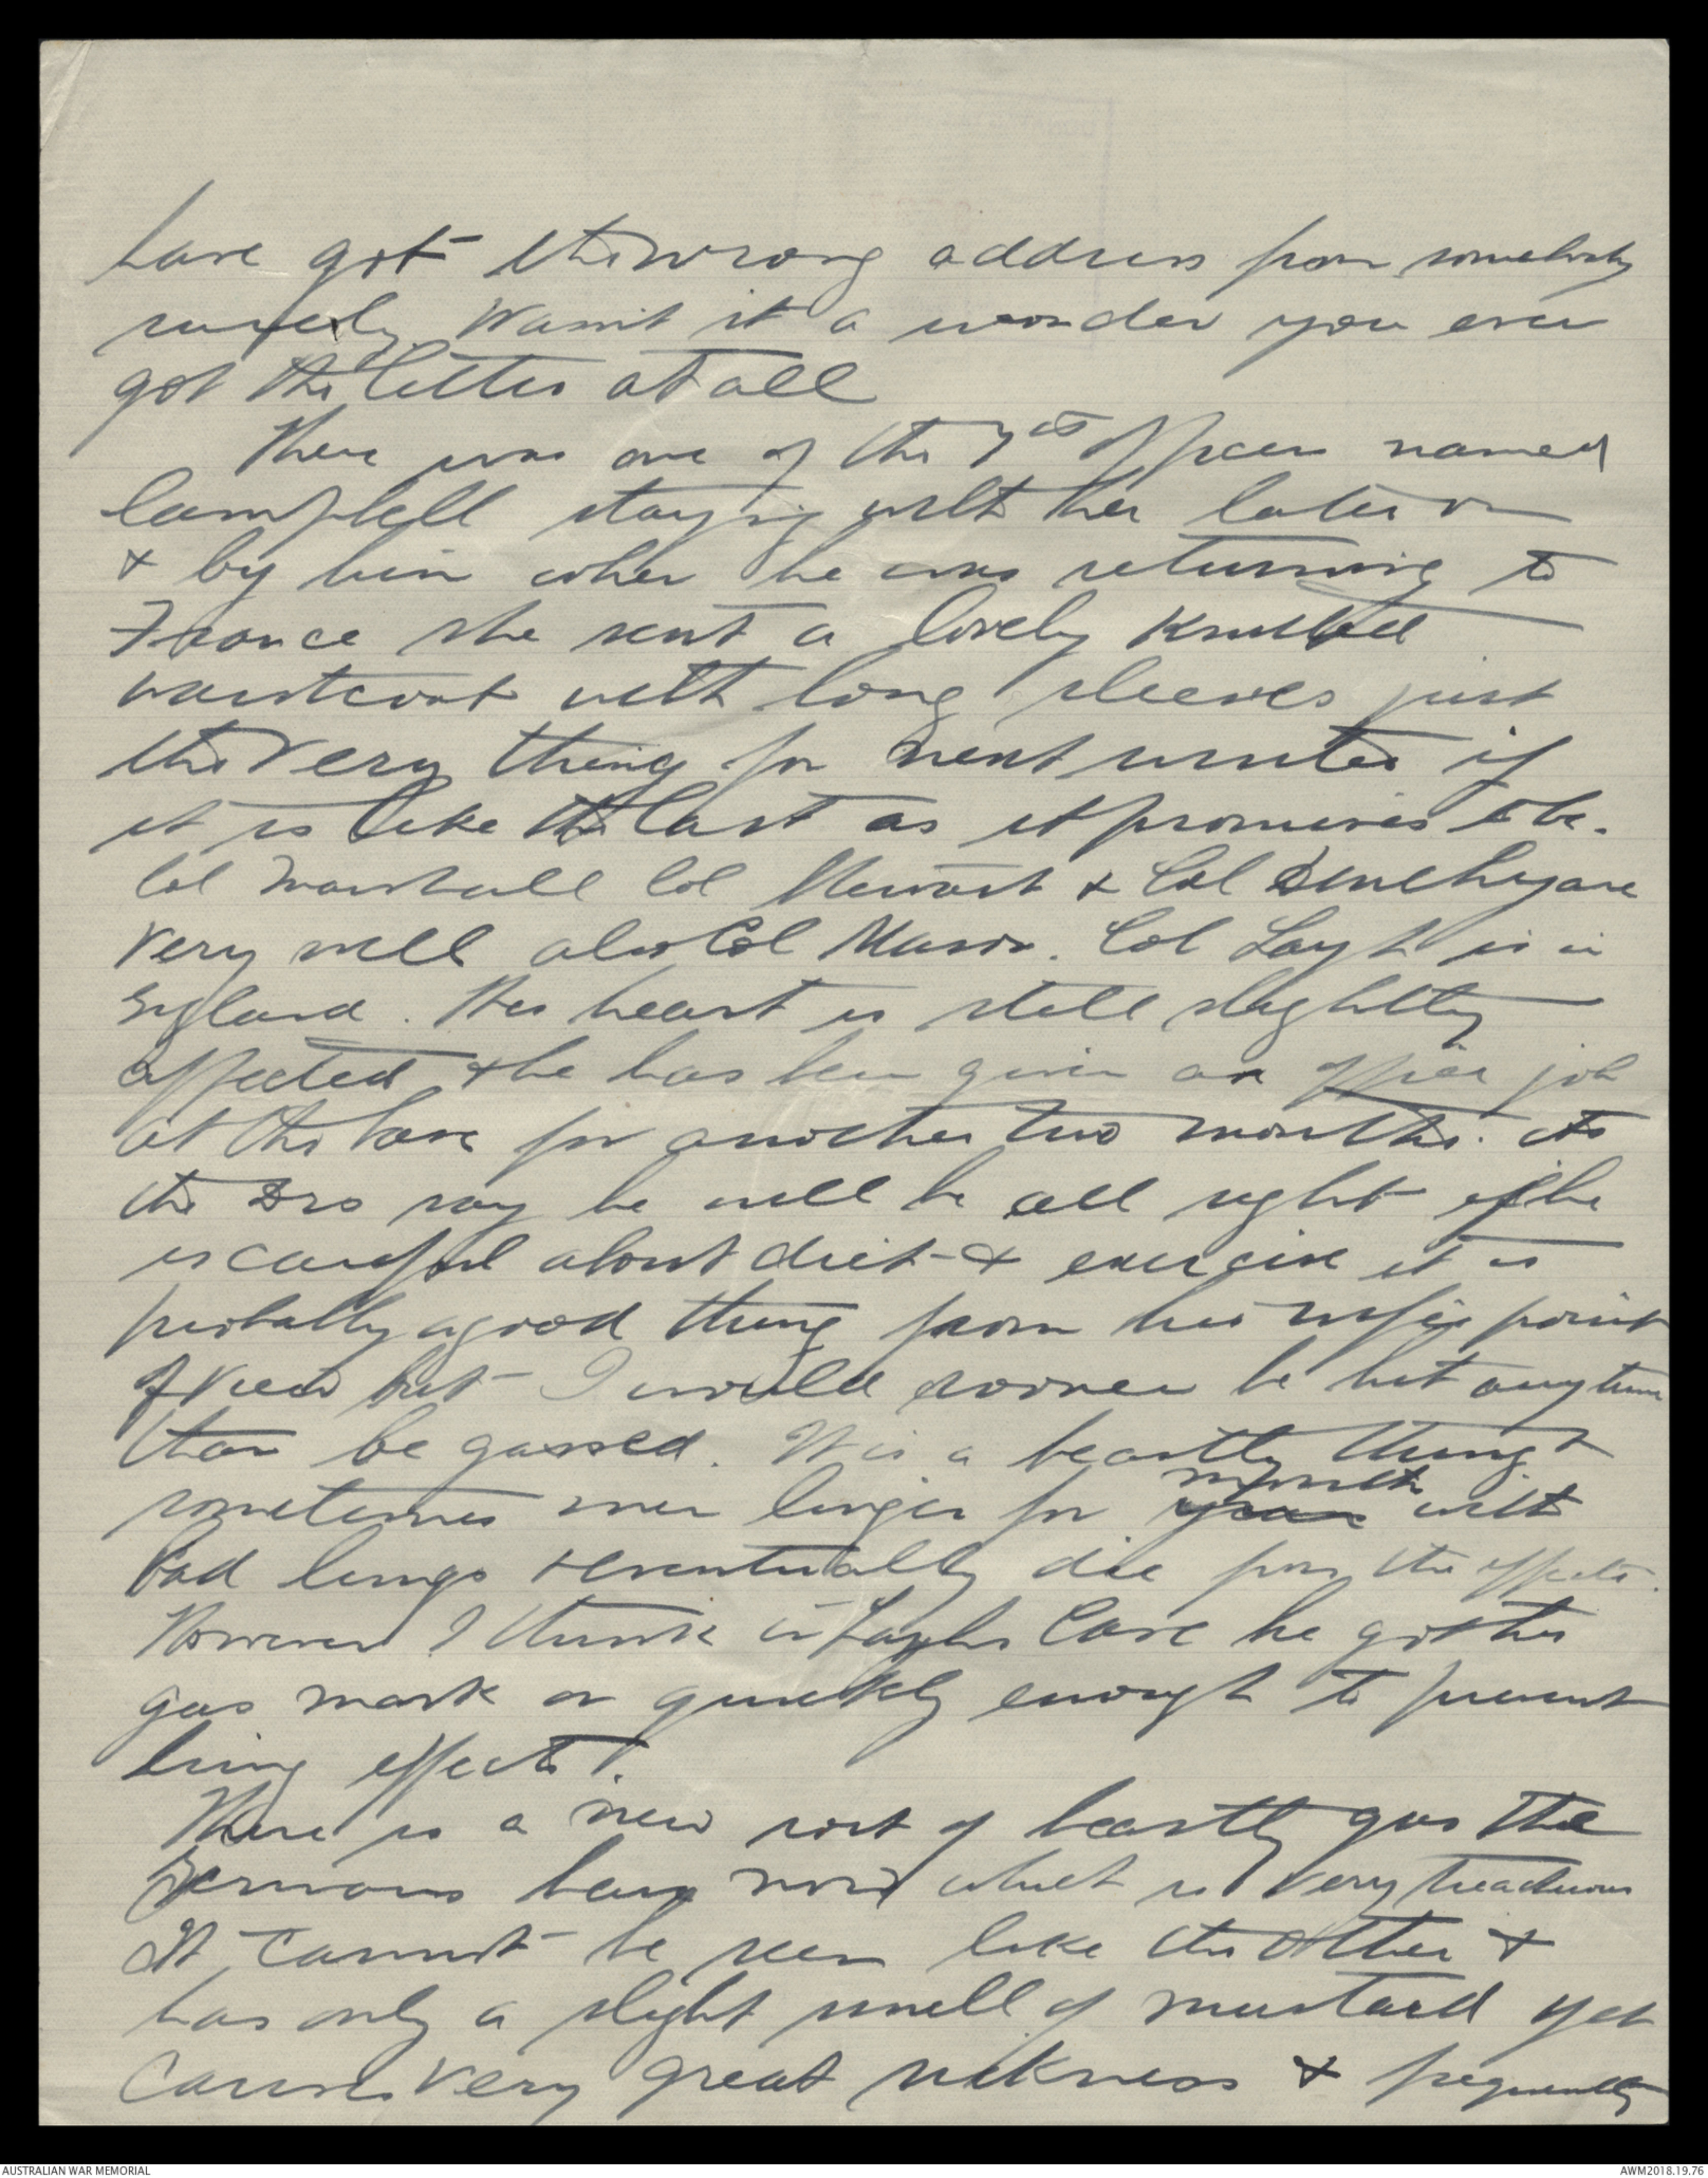 have got the wrong address from somebody
surely. Wasn't it a wonder you ever
got the letter at all
There was one of the 7th Officers named
Campbell staying with her later on
& by him when he was returning to
France she sent a lovely knitted
waistcoat with long sleeves just
the very thing for next winter if
it is like the last as it promises to be.
Col Marshall Col Stewart & Col Denehy are
very well also Col Mason. Col Layh is in
England. His heart is still slightly
affected & he has been given an office job
at the base for another two months. As
the Drs say he will be all right if he
is careful about diet & exercise it is
probably a good thing from his wife's point
of view but I would sooner be hit anytime
than be gassed. It is a beastly thing &
sometimes men linger for years months with
bad lungs & eventually die from the effects.
However I think in Layh's case he got his
gas mask on quickly enough to prevent
being effected.
There is a new sort of beastly gas the
Germans have now which is very treacherous
It cannot be seen like the other &
has only a slight smell of mustard yet
causes very great sickness & frequently
AUSTRALIAN WAR MEMORIAL
AWM2018.19.76